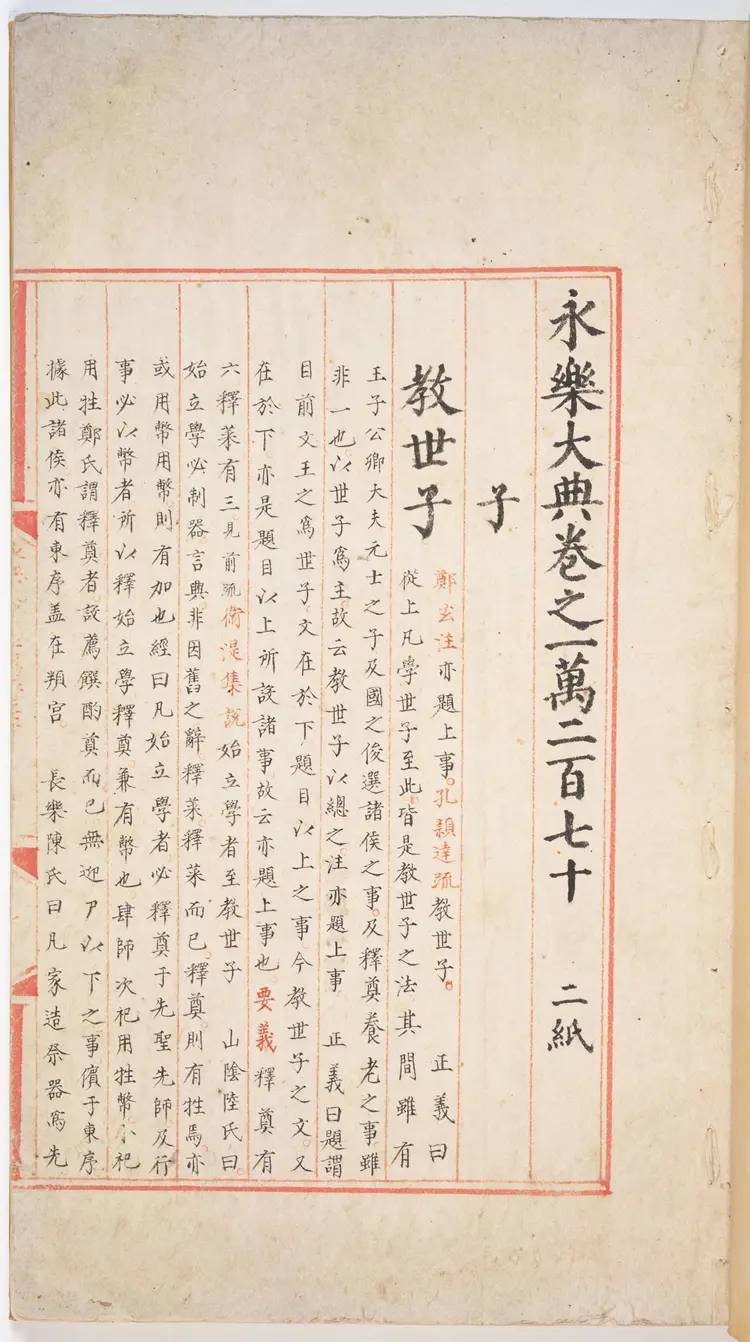 永樂大典卷之一萬二百七十 二紙
子
教世子
鄭玄注亦題上事。孔穎達疏教世子。 正義曰
從上凡學世子至此。皆是教世子之法。其間雖有
王子公卿大夫元士之子。及國之俊選諸侯之事。及釋奠養老之事。雖
非一也。以世子為主。故云教世子以總之。注亦題上事 正義曰題謂
目前文王之為世子。文在於下。題目以上之事。今教世子之文。又
在於下。亦是題目以上所設諸事。故云亦題上事也 要義釋奠有
六。釋菜有三。見前疏 衛湜集說始立學者至教世子 山陰陸氏曰。
始立學必制器。言典非因舊之辭。釋菜釋菜而已。釋奠則有牲焉。亦
或用幣。用幣則有加也。經曰凡始立學者。必釋奠于先聖先師。及行
事必以幣者。所以釋始立學釋奠。兼有幣也。肆師次祀用牲幣。小祀
用牲。鄭氏謂釋奠者。設薦饌酌奠而已。無迎尸以下之事。儐于東序
據此諸侯亦有東序。蓋在頖宮 長樂陳氏曰凡家造祭器為先